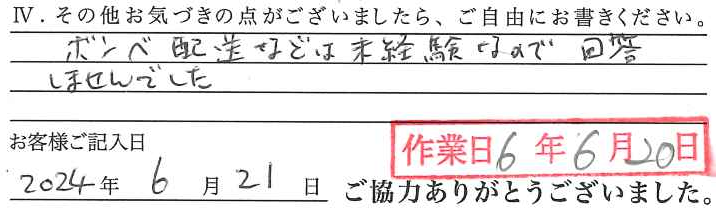 Ⅳ．その他お気づきの点がございましたら、ご自由にお書きください。
ボンベ配送などは未経験なので 回答
しませんでした
お客様ご記入日
作業日6年6月20日
2024年 6月21日
ご協力ありがとうございました。